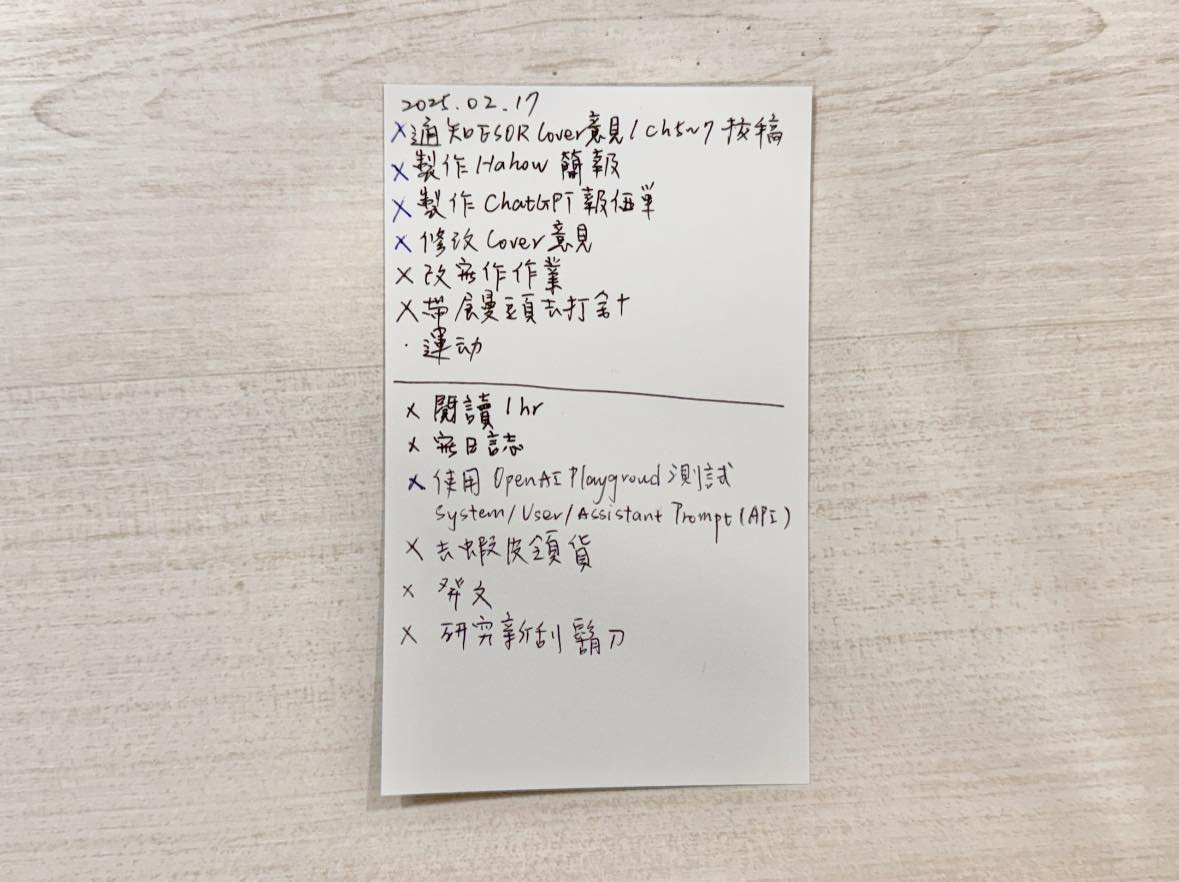 2025.02.17
× 通知ESOR Cover意見/Ch5~7 校稿
× 製作Hahow 簡報
× 製作ChatGPT報価单
× 修改Cover意見
× 改寫作作業
× 帶 饅頭去打針
· 運动
× 閱讀 1hr
× 寫日誌
× 使用 OpenAI Playgroud 測試
System/User/Assistant Prompt(API)
× 去蝦皮領貨
× 發文
× 研究新刮鬍刀